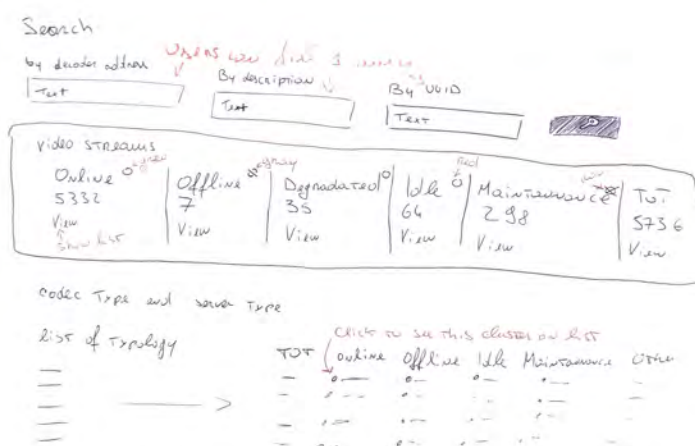 Search
by decoder address
Users can
1
By description
By UUID
Text
Text
Text
Video streams
Online green
5332
View
show list
Offline gray
7
View
Degradated
35
View
Idle Red
64
View
Maintainance
298
View
TOT
5736
View
codec Type and server Type
list of Typology
click to see this cluster on list
TOT Online Offline Idle Maintainance